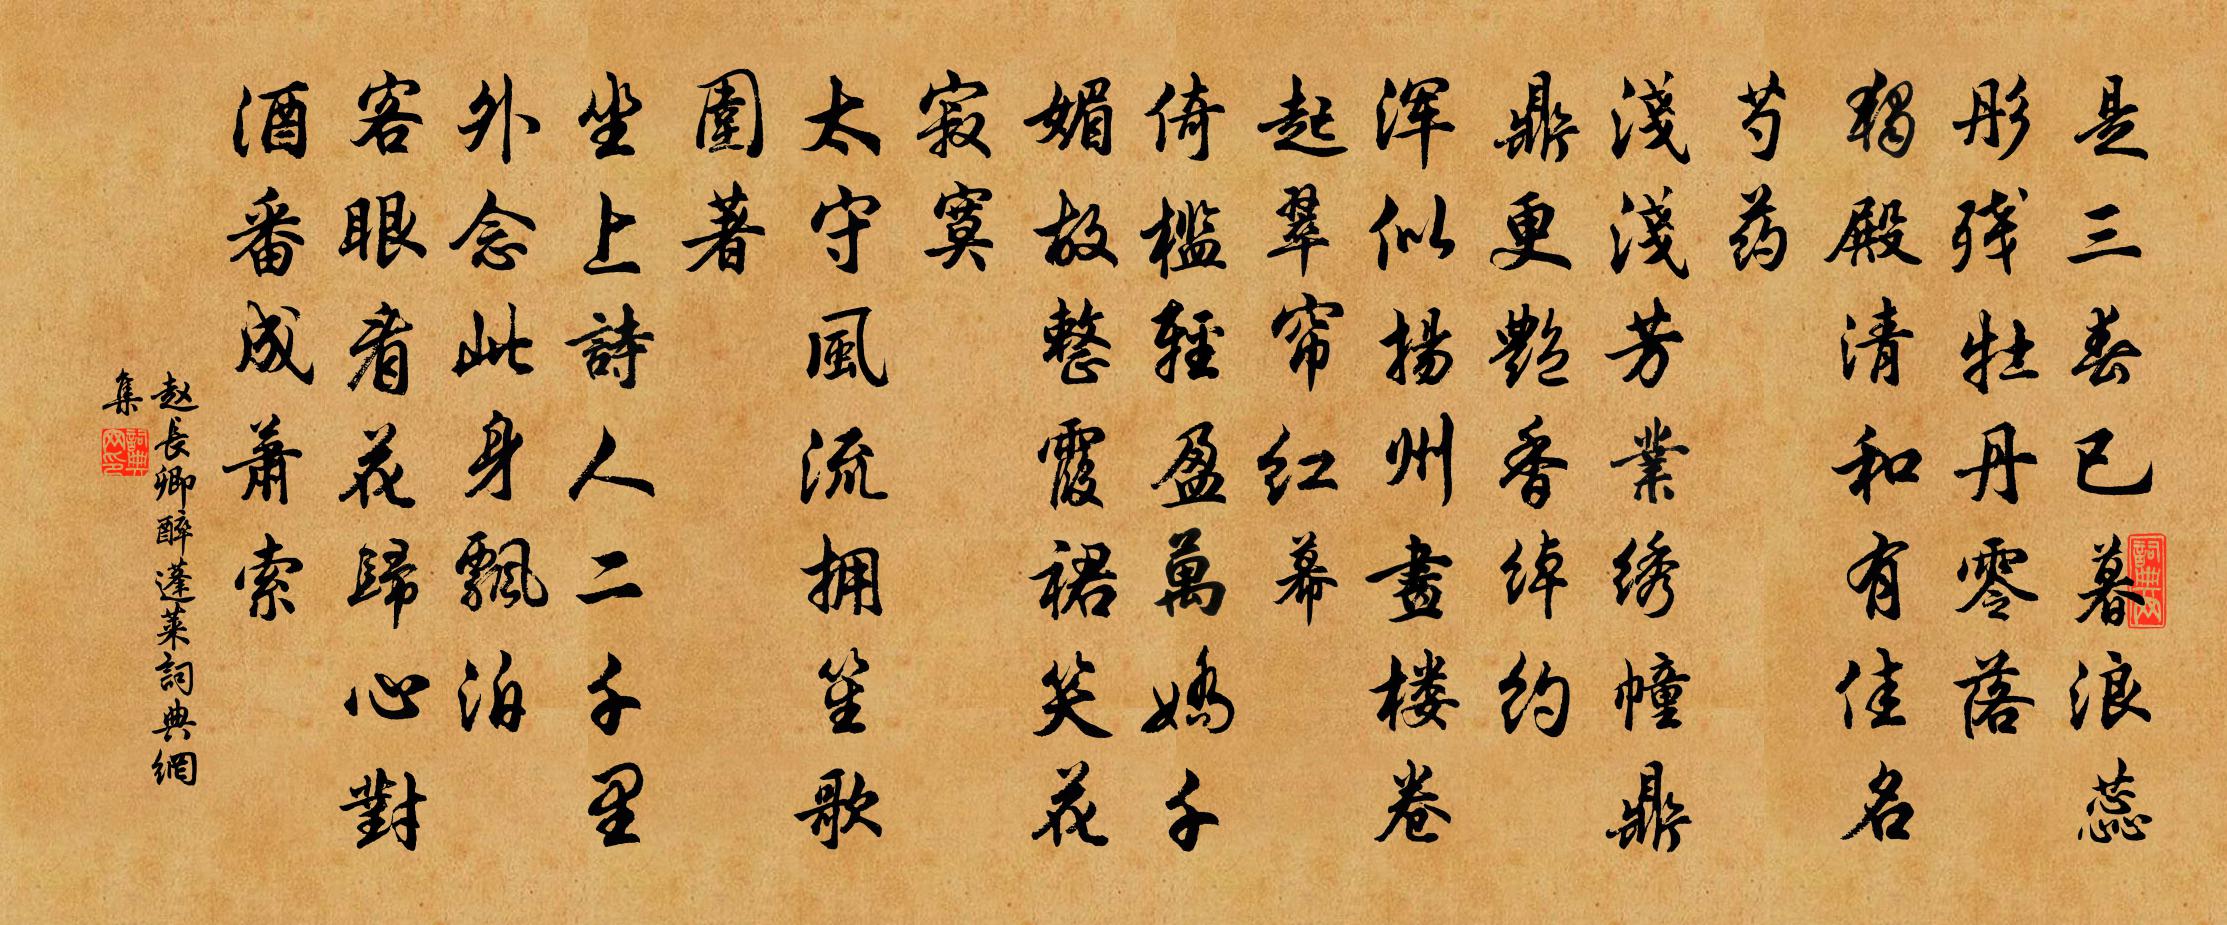 是三春已暮浪蕊
彤残牡丹零落
獨殿清和有佳名
芍药
淺淺芳業绣幢鼎
鼎更艷香绰约
浑似揚州畫楼卷
起翠帘红幕
倚槛輕盈萬嬌千
媚故整霞裙笑花
寂寞
太守風流拥笙歌
圍著
坐上詩人二千里
外念此身飄泊
客眼看花歸心對
酒番成萧索
赵長卿醉蓬莱詞典網
集
詞典网
詞典网印